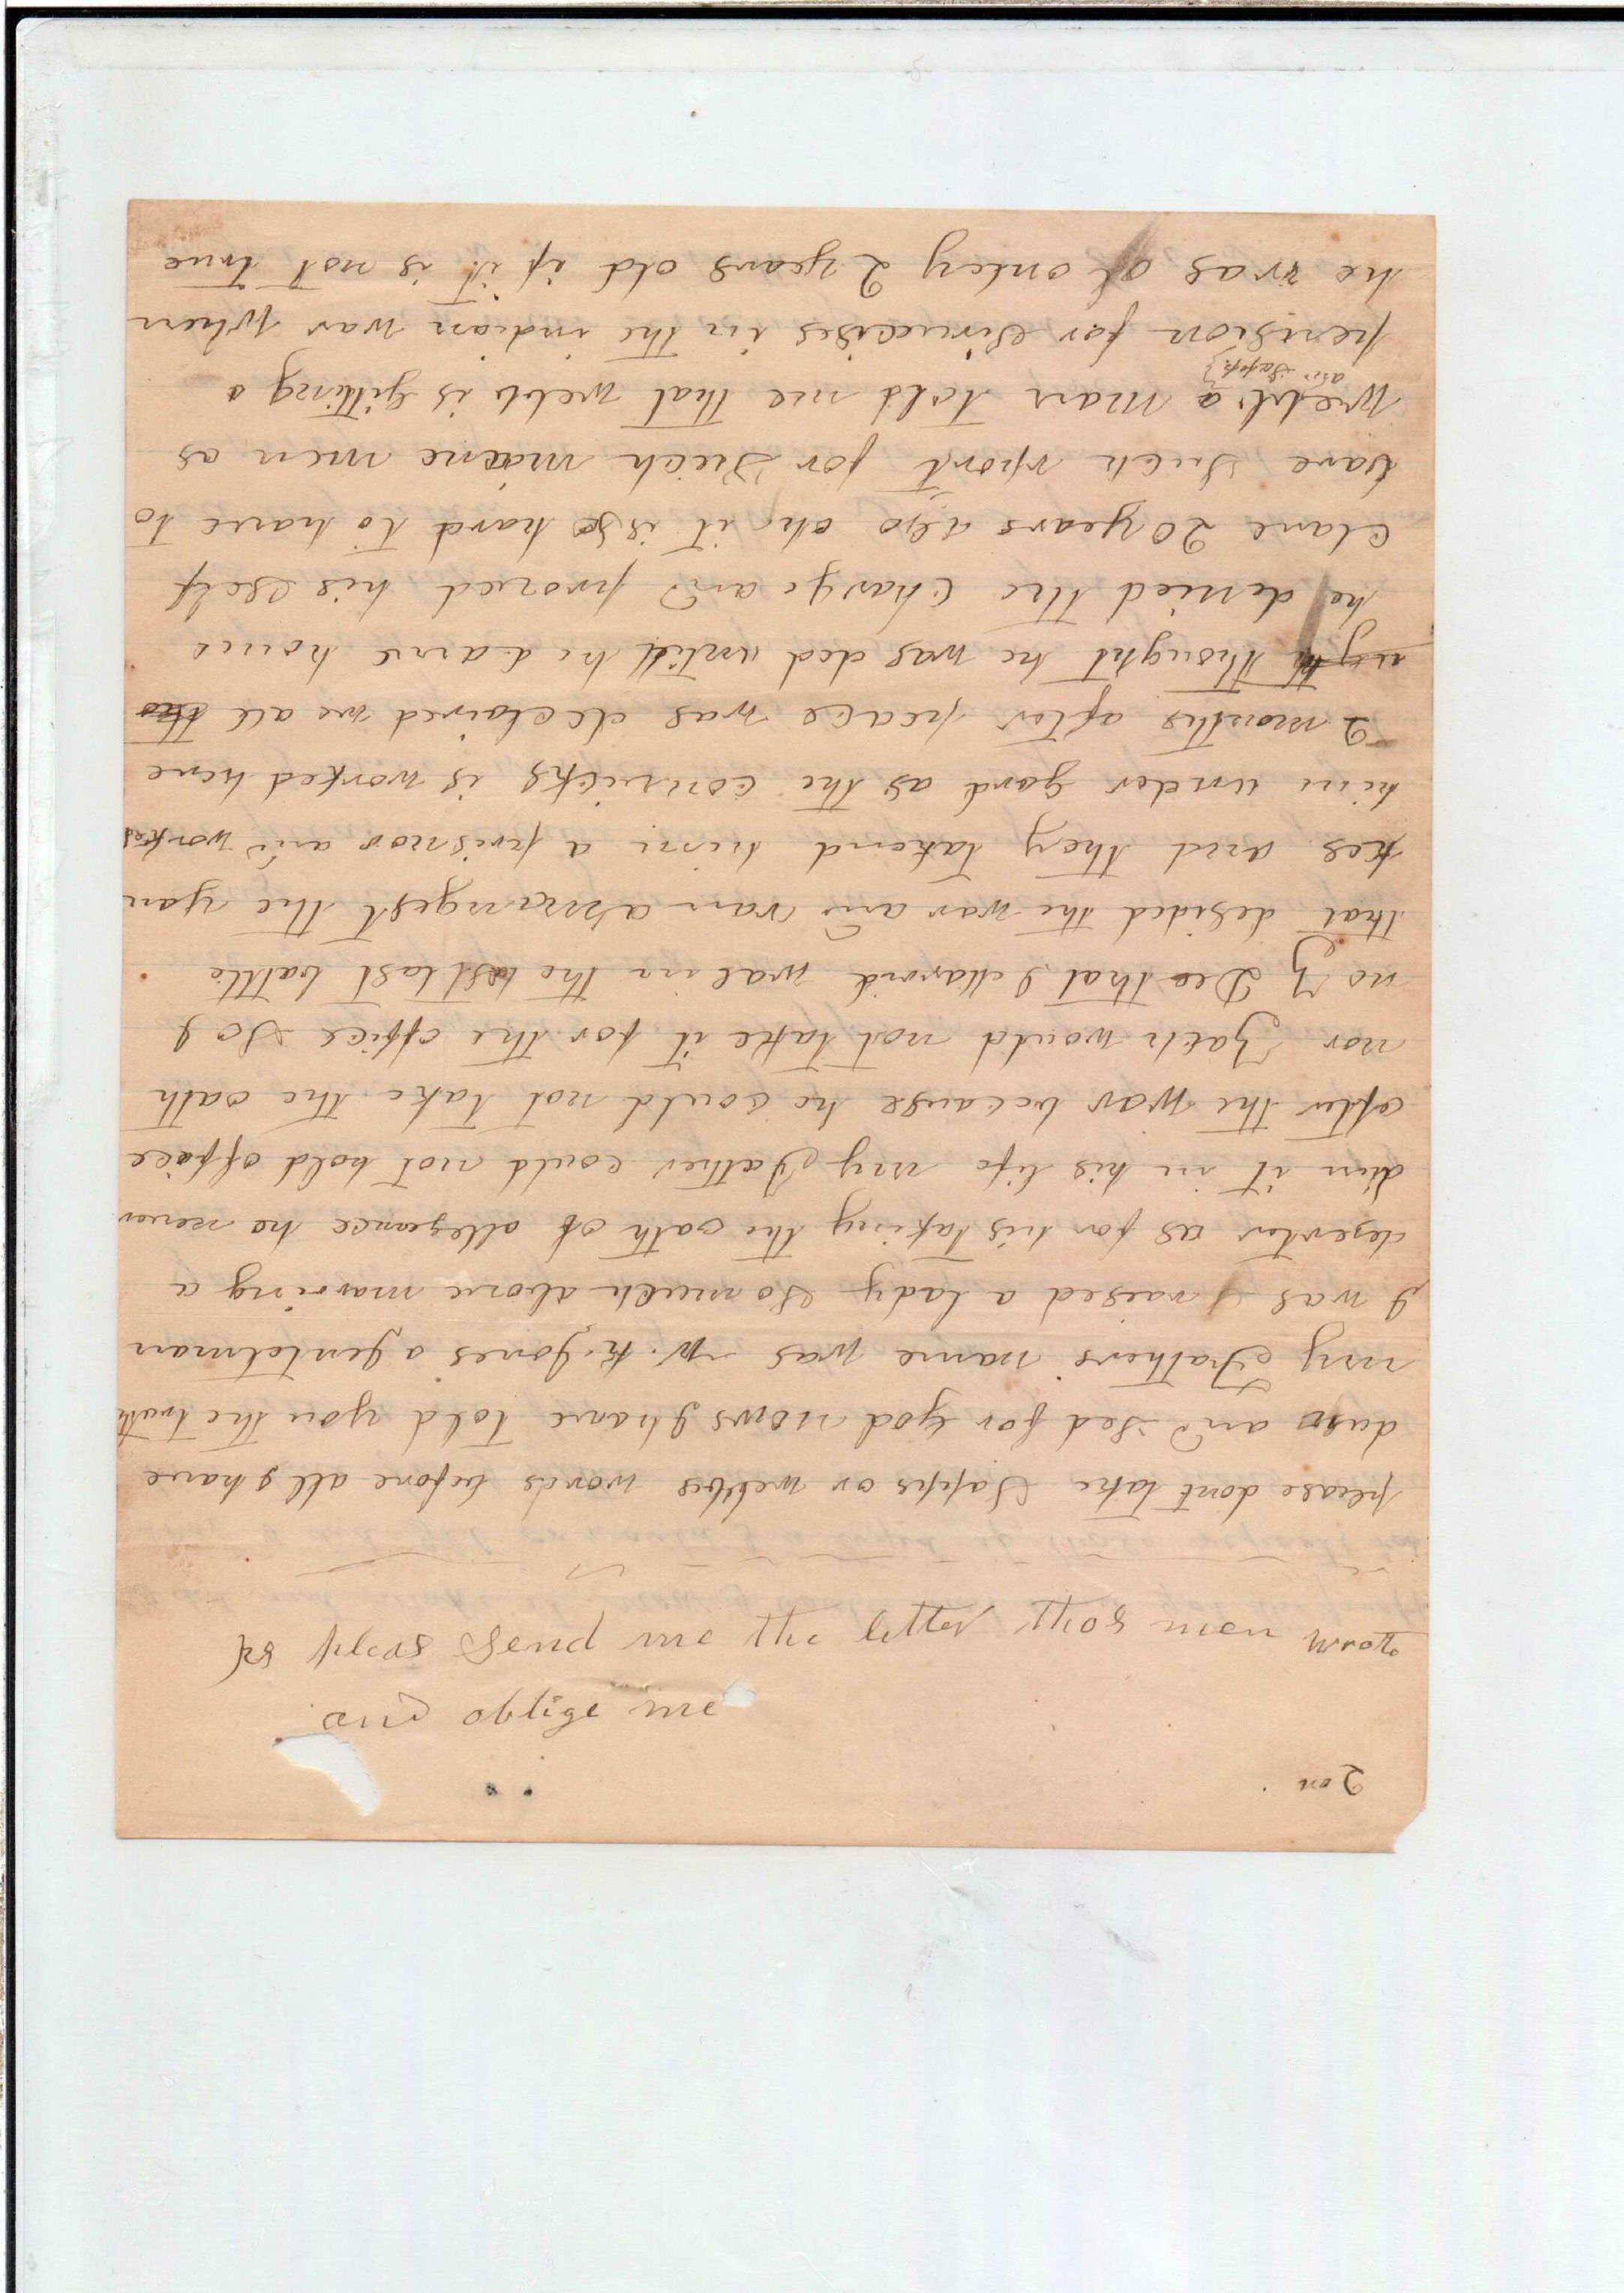 please dont take Sapps or webbs words before all I have
dun and sed for god nows I have told you the truth
my Fathers name was W. K. Jones a gentelman
I was raised a lady so much above marring a
deserter as for his taking the oath of allegance he never
dun it in his life my Father could not hold office
after the war because he could not take the oath
nor Zach would not take it for the office So I
no Z Dea that I marrid was in the last last battle
that desided the war and ran a
kes and they takend him a prisnor and worked
him under gard as the convicks is worked here
2 months after peace was declaired we all
thought he was ded untill he came home
he denied the charge and proved his self
clare 20 years ago oh it is so hard to have to
bare such sport for Such meane men as
asn Sapp
Webb a man told me that webb is gitting a
pension for Sirvacises in the indian war When
he was onley 2 years old if it is not true
ps pleas Send me the letter thos men wrote
and oblige me